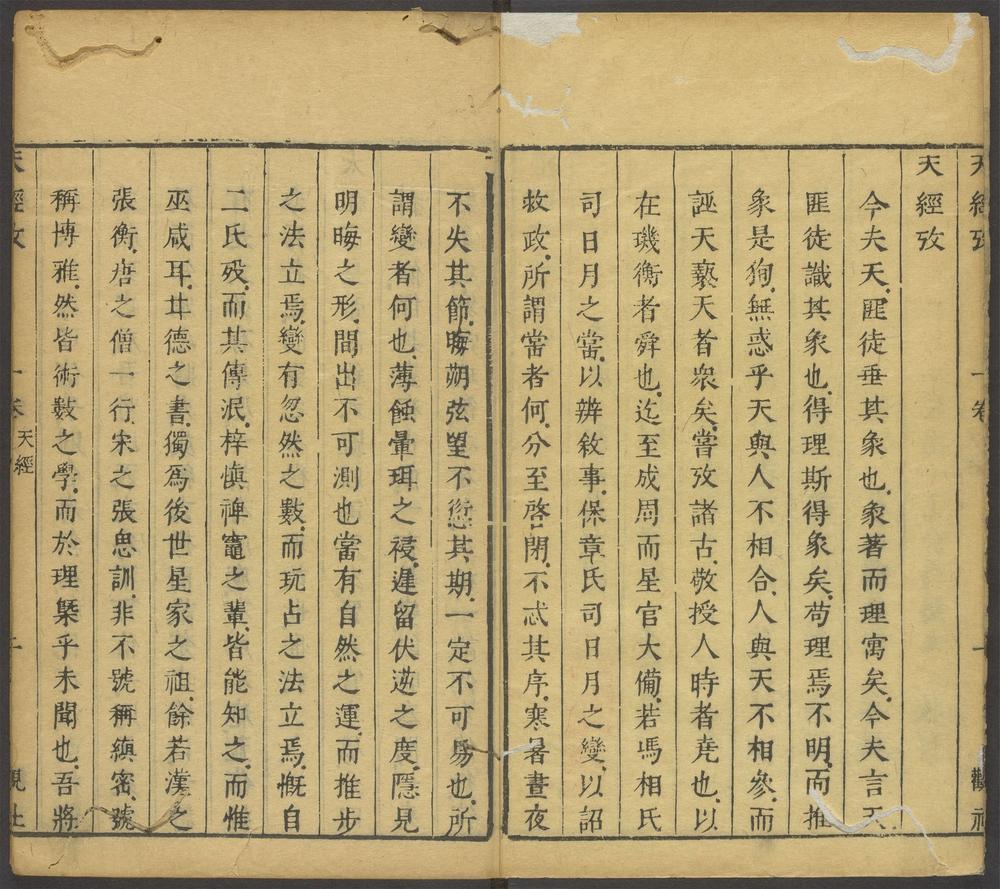 天經攷
一卷
一
天經攷
今夫天匪徒垂其象也象著而理寓矣今夫言天
匪徒識其象也得理斯得象矣苟理焉不明而推
象是狥無惑乎天與人不相合人與天不相參而
誣天褻天者衆矣嘗攷諸古敬授人時者堯也以
在璣衡者舜也迄至成周而星官大備若馮相氏
司日月之當以辨敘事保章氏司日月之變以詔
救政所謂常者何分至啓閉不忒其序寒暑晝夜
不失其節晦朔弦望不愆其期一定不可易也所
謂變者何也薄蝕暈珥之祲遲留伏逆之度隱見
明晦之形間出不可測也當有自然之運而推步
之法立焉變有忽然之數而玩占之法立焉慨自
二氏歿而其傳泯梓慎裨竈之輩皆能知之而惟
巫咸耳甘德之書獨爲後世星家之祖餘若漢之
張衡唐之僧一行宋之張思訓非不號稱縝密號
稱博雅然皆術數之學而於理槩乎未聞也吾將
天經攷
一卷
天經
二